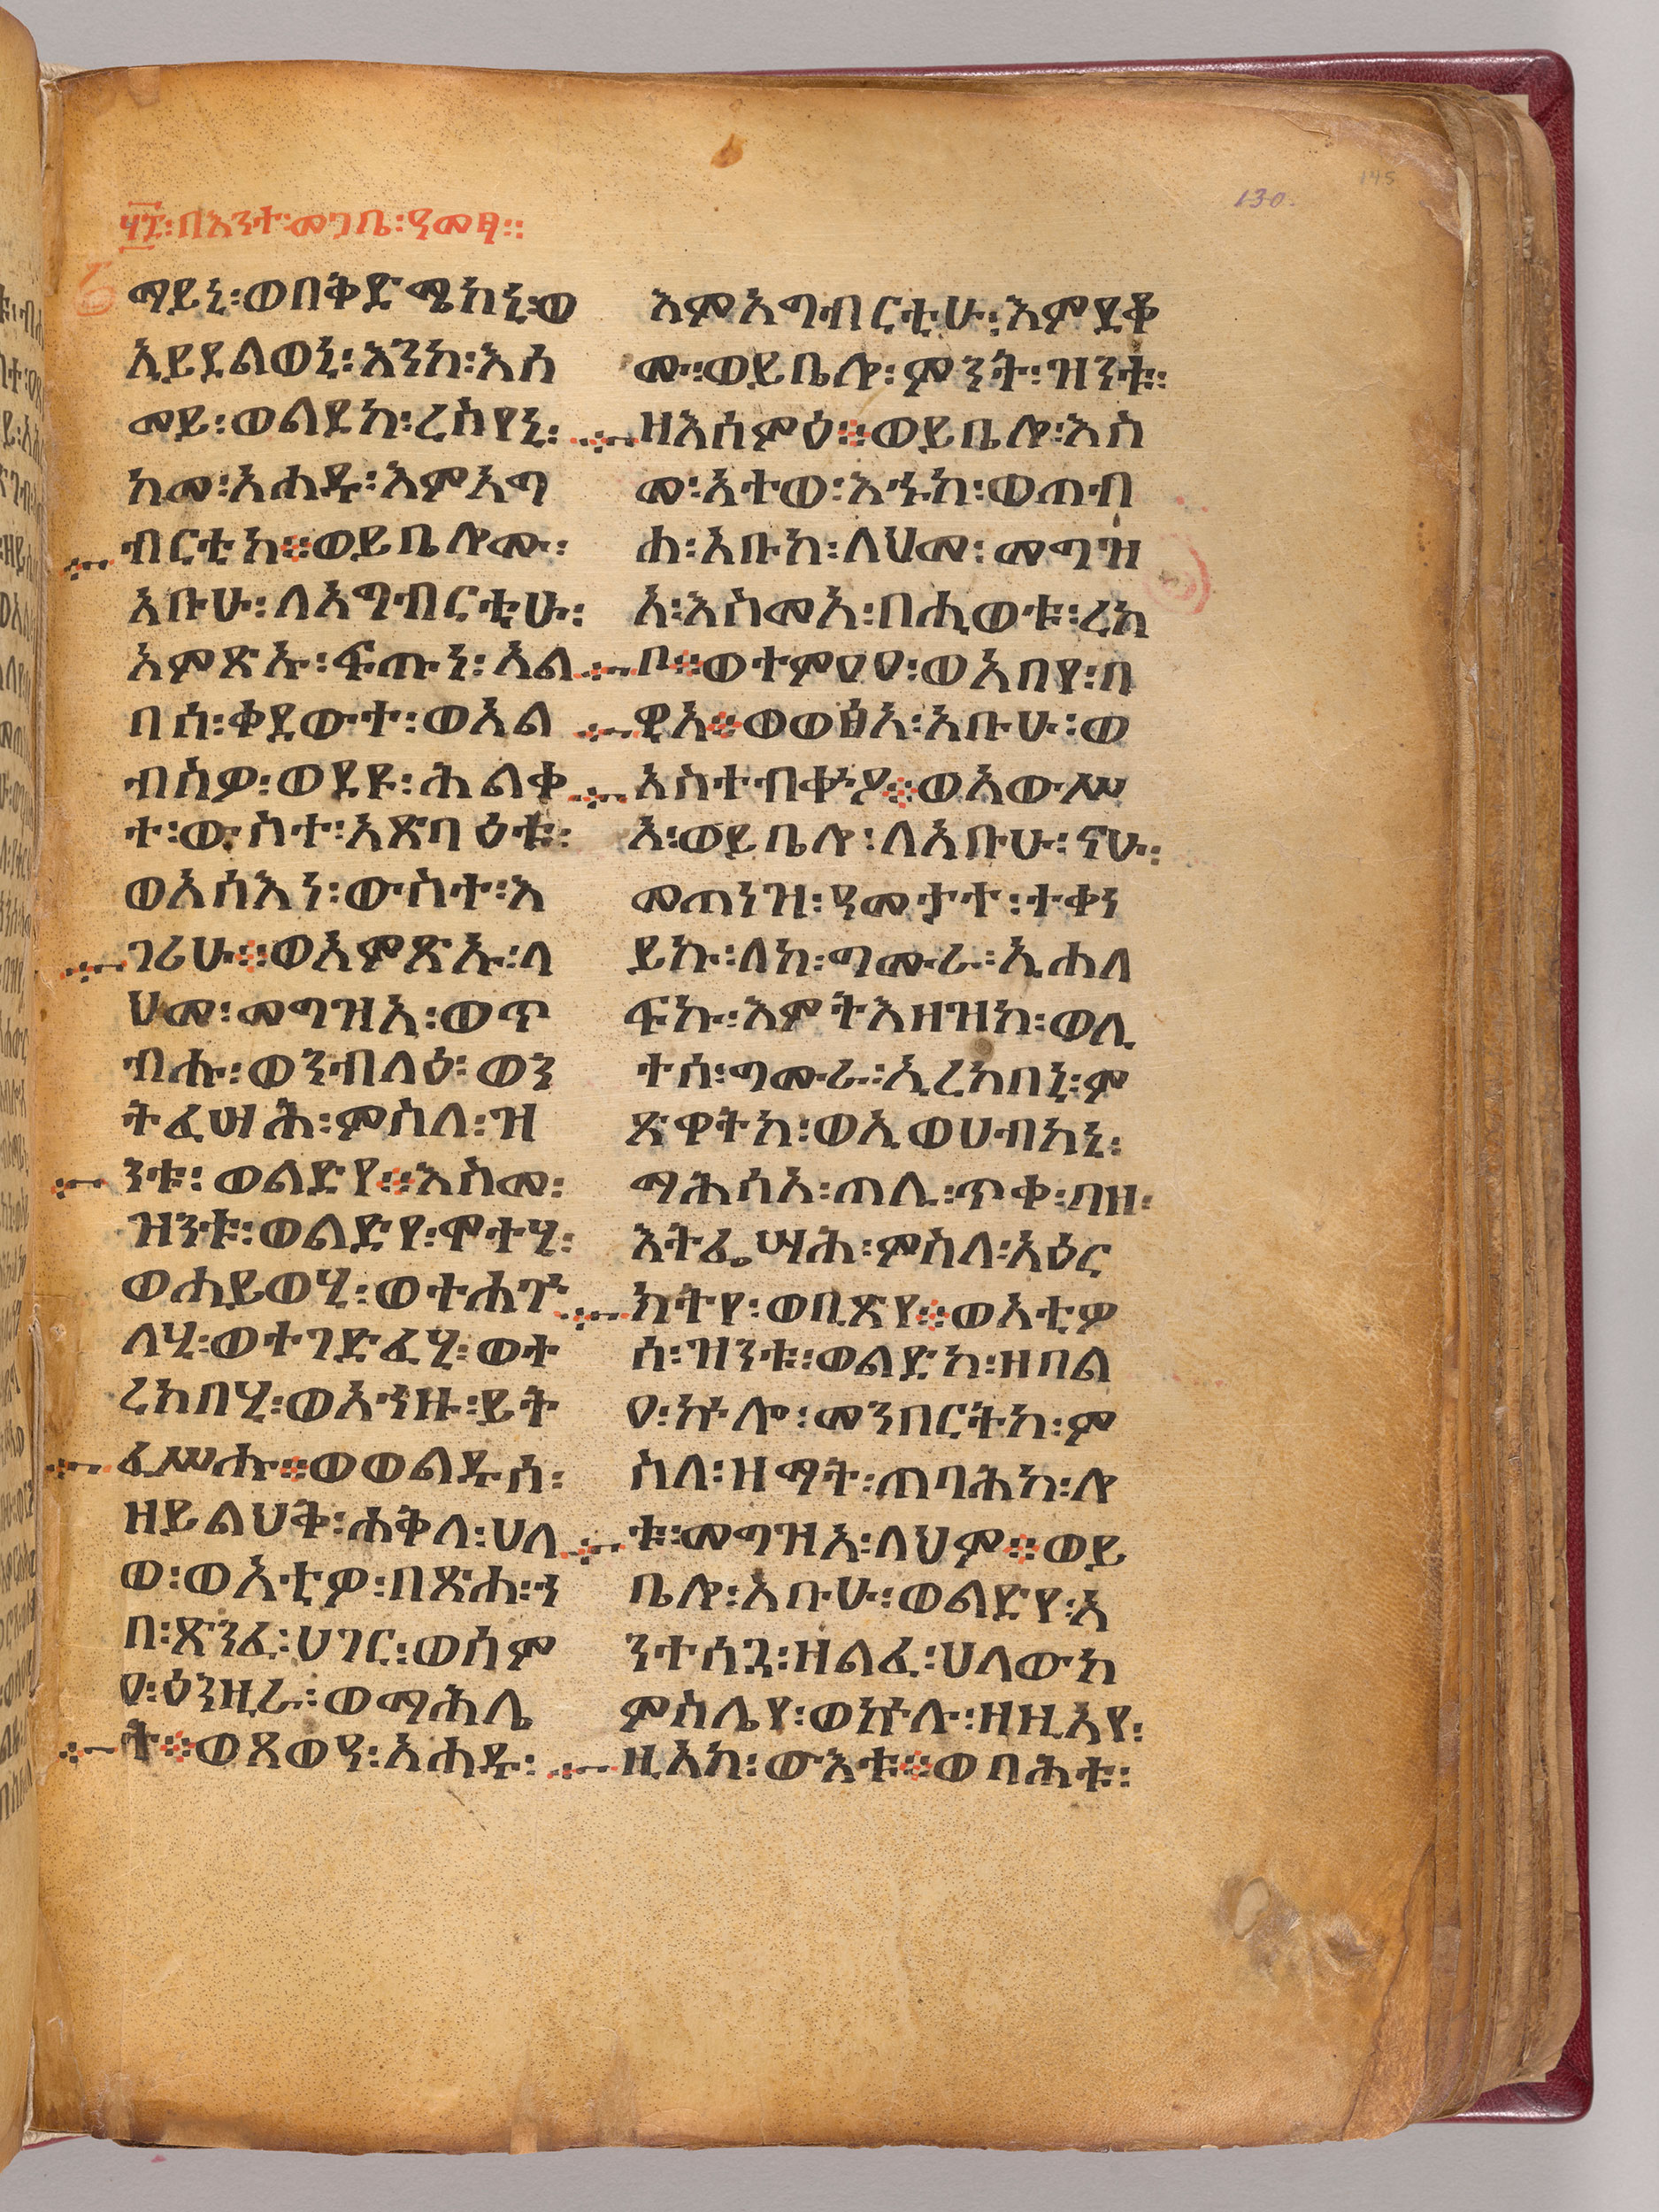 ፶፰፡በእንተ፡መጋቤ፡ዓመፃ።
130.
145
ማይኒ፡ወበቅድሜከኒ፡ወ
ኢይደልወኒ፡እንከ፡እሰ
መይ፡ወልደከ፡ረስየኒ፡
ከመ፡አሐዱ፡እምአግ
ብርቲከ፨ወይቤሎሙ፡
አቡሁ፡ለአግብርቲሁ፡
አምጽኡ፡ፍጡነ፡አል
በሰ፡ቀደውተ፡ወአል
ብስዎ፡ወደዩ፡ሕልቀ
ተ፡ውስተ፡አጽባዕቱ፡
ወአሳእነ፡ውስተ፡እ
ገሪሁ፨ወአምጽኡ፡ላ
ህመ፡መግዝአ፡ወጥ
ብሑ፡ወንብላዕ፡ወን
ትፈሣሕ፡ምስለ፡ዝ
ንቱ፡ወልድየ፨እስመ፡
ዝንቱ፡ወልድየ፡ሞተሂ፡
ወሐይወሂ፡ወተሐጕ
ለሂ፡ወተገድፈሂ፡ወተ
ረክበሂ፡ወአኀዙ፡ይት
ፈሥሑ፨ወወልዱሰ፡
ዘይልህቅ፡ሐቅለ፡ሀለ
ወ፡ወአቲዎ፡በጽሐ፡ኀ
በ፡ጽንፈ፡ሀገር፡ወሰም
ዐ፡ዕንዚራ፡ወማሕሌ
ተ፨ወጸወዓ፡አሐዱ፡
እምአግብርቲሁ፡እምደቆ
ሙ፡ወይቤሎ፡ምንት፡ዝንቱ፡
ዘእሰምዕ፨ወይቤሎ፡እስ
መ፡አተወ፡እኁከ፡ወጠብ
ሐ፡አቡከ፡ላህመ፡መግዝ
አ፡እስመአ፡በሒወቱ፡ረከ
ቦ፨ወተምዐዐ፡ወአበየ፡በ
ዊአ፨ወወፅአ፡አቡሁ፡ወ
አስተብቍዖ፨ወአውሥ
አ፡ወይቤሎ፡ለአቡሁ፡ናሁ፡
መጠነዝ፡ዓመታተ፡ተቀነ
ይኩ፡ለከ፡ግሙራ፡ኢሐለ
ፍኩ፡እምትእዘዝከ፡ወሊ
ተሰ፡ግሙራ፡ኢረከበኒ፡ም
ጽዋትከ፡ወኢወሀብከኒ፡
ማሕስአ፡ጠሊ፡ጥቀ፡በዘ፡
እትፌሣሕ፡ምስለ፡አዕር
ክትየ፡ወቢጽየ፨ወአቲዎ
ሰ፡ዝንቱ፡ወልድከ፡ዘበል
ዐ፡ኵሎ፡መንበርትከ፡ም
ስለ፡ዘማት፡ጠባሕከ፡ሎ
ቱ፡መግዝአ፡ላህም፨ወይ
ቤሎ፡አቡሁ፡ወልድየ፡አ
ንተሰኳ፡ዘልፈ፡ሀሎውከ
ምስሌየ፡ወኵሉ፡ዘዚአየ፡
ዚአከ፡ውእቱ፨ወባሕቱ፡